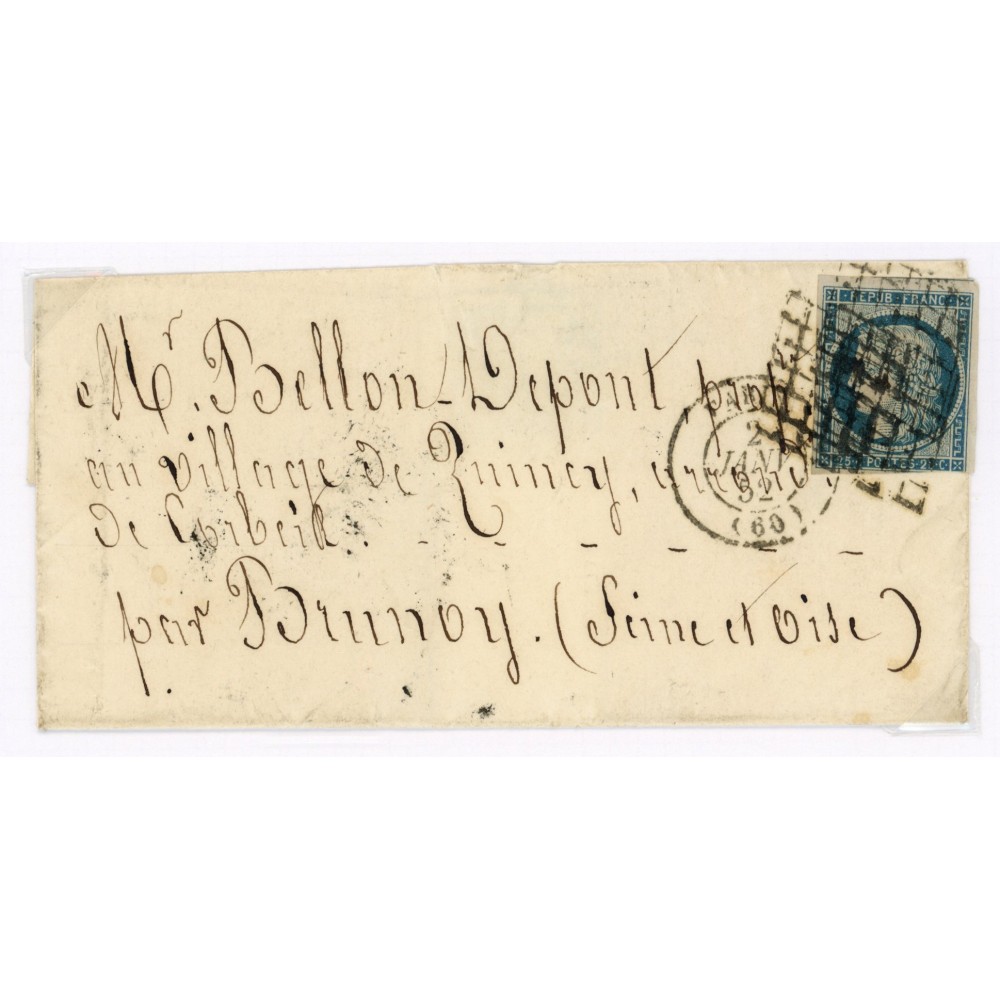 REPUB·FRANC·
Mr. Bellon-Depont, prop
au village de Quincy, arrond.
de Corbeil. - - - - - -
par Brunoy. (Seine et Oise)
2
JANV
52
(60)
25 C POSTES 25 C